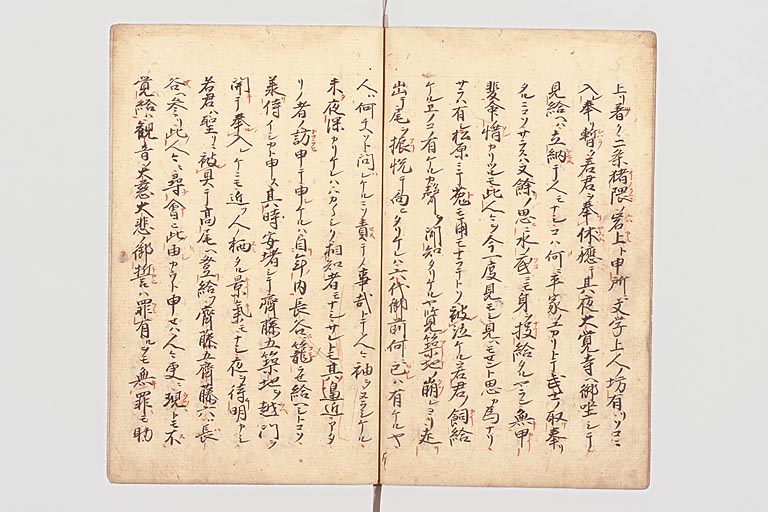 上リ着ク二条猪隈岩上ト申所ニ文学上人ノ坊有ハソコニ
入レ奉リ暫ク若君ヲ奉休穏テ其夜大覚寺ヘ御坐シテ
見給ヘハ立納テ人モナシコハ何ニ平家ノユカリトテ武士ノ取奉リ
タルニヤサラスハ文餘ノ思ニ水ノ底ニモ身ヲ投給タルヤラン無甲
斐命惜カリツルモ此人々ヲ今一度見モシ見ヘモセント思カ為ナリ
サスハ有ル松原ニテ兎モ角モナラテトソ被泣ケル若君ノ飼給
ケルヱノコノ有ケルカ聲ヲ聞知タリケルヤ覧築地ノ崩レヨリ走
出テ尾ヲ振悦テ向ヒタリケレハ六代御前何ニ己ハ有ケルヤ
人ハ何チヘソト問レケルニソ責テノ事哉トテ人々袖ヲヌラシケル
未夜深カリケレハハカ〳〵シク相知者モナシサレトモ其邊近キアタ
リノ者ノ訪申テ申ケルハ自年内長谷籠セ給ヘシトコソ
萊侍イシカト申ス其時安堵シテ齊藤五築地ヲ越門ヲ
開テ奉入レケレトモ近ク人ノ栖タル景氣モナシ夜ヲ待明カシ
若君ハ聖リニ被具テ髙尾ヘ登給フ齊藤五齊藤六ハ長
谷ヘ参リ此人々ニ尋會ヒ此由カクト申セハ人々更ニ現トモ不
覚給ハ観音大慈大悲ノ御誓ハ罪有ルヲモ無罪ヲモ助